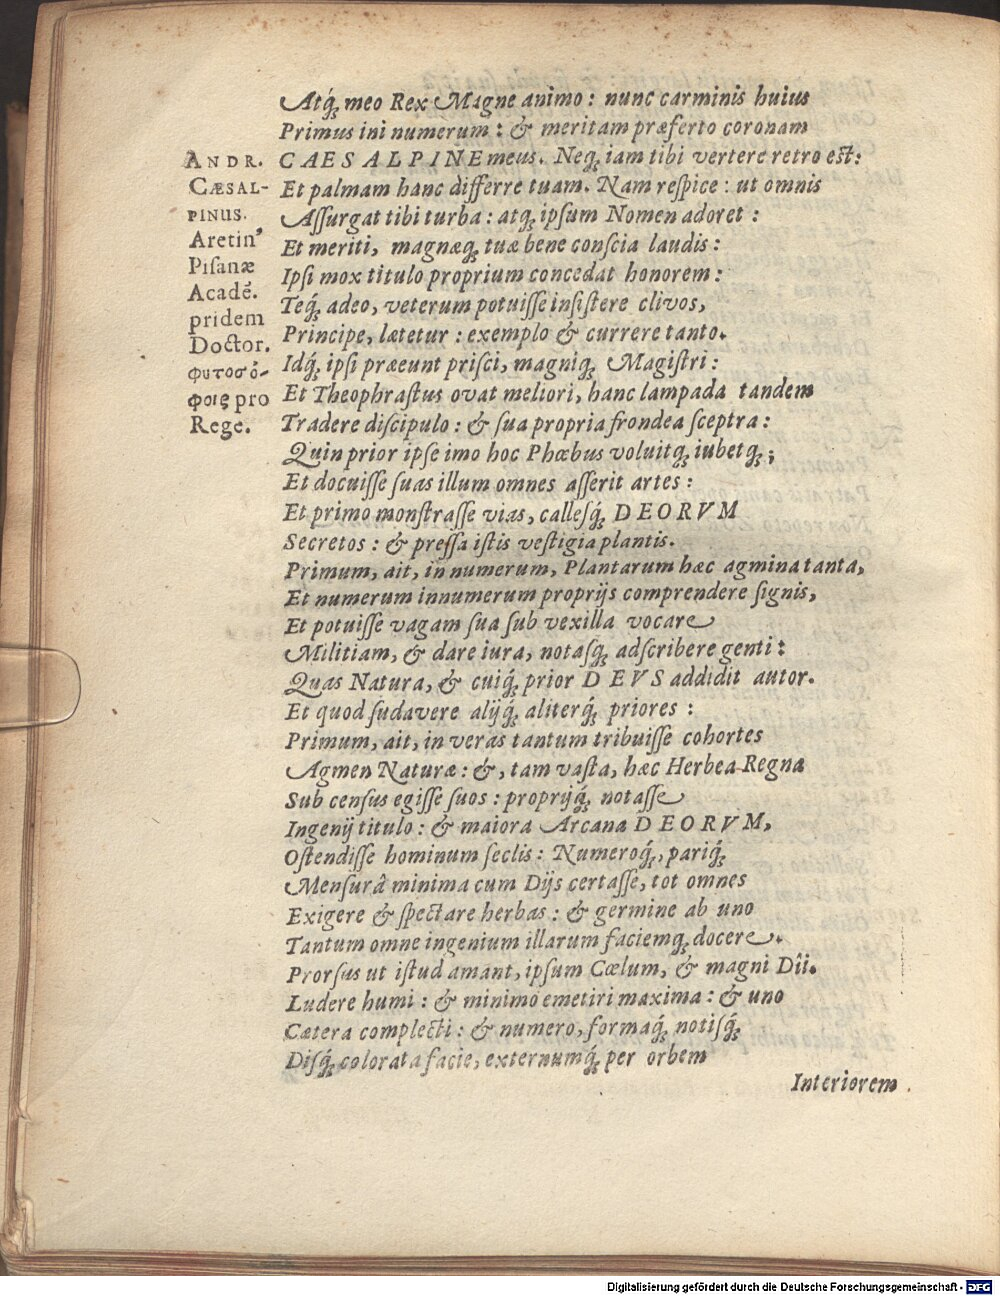 Atq́; meo Rex Magne animo: nunc carminis huius
Primus ini numerum: & meritam præferto coronam
CAESALPINE meus. Neq; iam tibi vertere retro est:
Et palmam hanc differre tuam. Nam respice: ut omnis
Assurgat tibi turba: atq; ipsum Nomen adoret:
Et meriti, magnæq; tuæ bene conscia laudis:
Ipsi mox titulo proprium concedat honorem:
Teq́; adeo, veterum potuisse insistere clivos,
Principe, lætetur: exemplo & currere tanto.
Idq́; ipsi præeunt prisci, magniq; Magistri:
Et Theophrastus ovat meliori, hanc lampada tandem
Tradere discipulo: & sua propria frondea sceptra:
Quin prior ipse imo hoc Phœbus voluitq; iubetq;;
Et docuisse suas illum omnes asserit artes:
Et primo monstrasse vias, callesq́; DEORVM
Secretos: & pressa istis vestigia plantis.
Primum, ait, in numerum, Plantarum hæc agmina tanta,
Et numerum innumerum proprijs comprendere signis,
Et potuisse vagam sua sub vexilla vocare
Militiam, & dare iura, notasq; adscribere genti:
Quas Natura, & cuiq́; prior DEVS addidit autor.
Et quod sudavere alijq́; aliterq́; priores:
Primum, ait, in veras tantum tribuisse cohortes
Agmen Naturæ: &, tam vasta, hæc Herbea Regna
Sub census egisse suos: proprijq́; notasse
Ingenij titulo: & maiora Arcana DEORVM,
Ostendisse hominum seclis: Numeroq́;, pariq́;
Mensurâ minima cum Dijs certasse, tot omnes
Exigere & spectare herbas: & germine ab uno
Tantum omne ingenium illarum faciemq; docere.
Prorsus ut istud amant, ipsum Cœlum, & magni Dîi.
Ludere humi: & minimo emetiri maxima: & uno
Cætera complecti: & numero, formaq́; notisq́;
Disq́; colorata facie, externumq́; per orbem
Interiorem
ANDR.
CÆSAL-
PINUS.
Aretin'
Pisanæ
Acadē.
pridem
Doctor.
φυτοσό-
φοις pro
Rege.
Digitalisierung gefördert durch die Deutsche Forschungsgemeinschaft - DFG